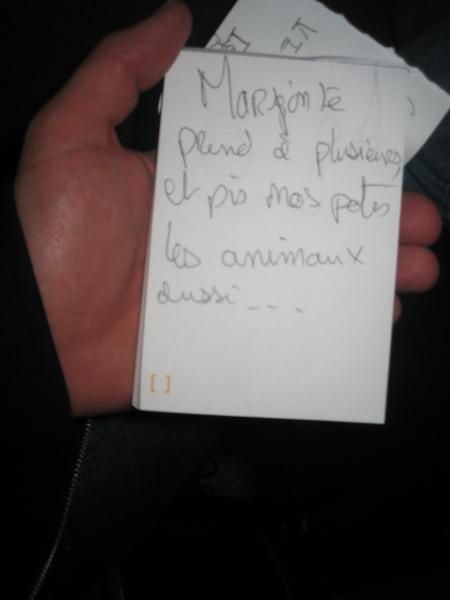 IT
Margonte
prend à plusieurs
et pis mes potes
les animaux
aussi...
[ ]